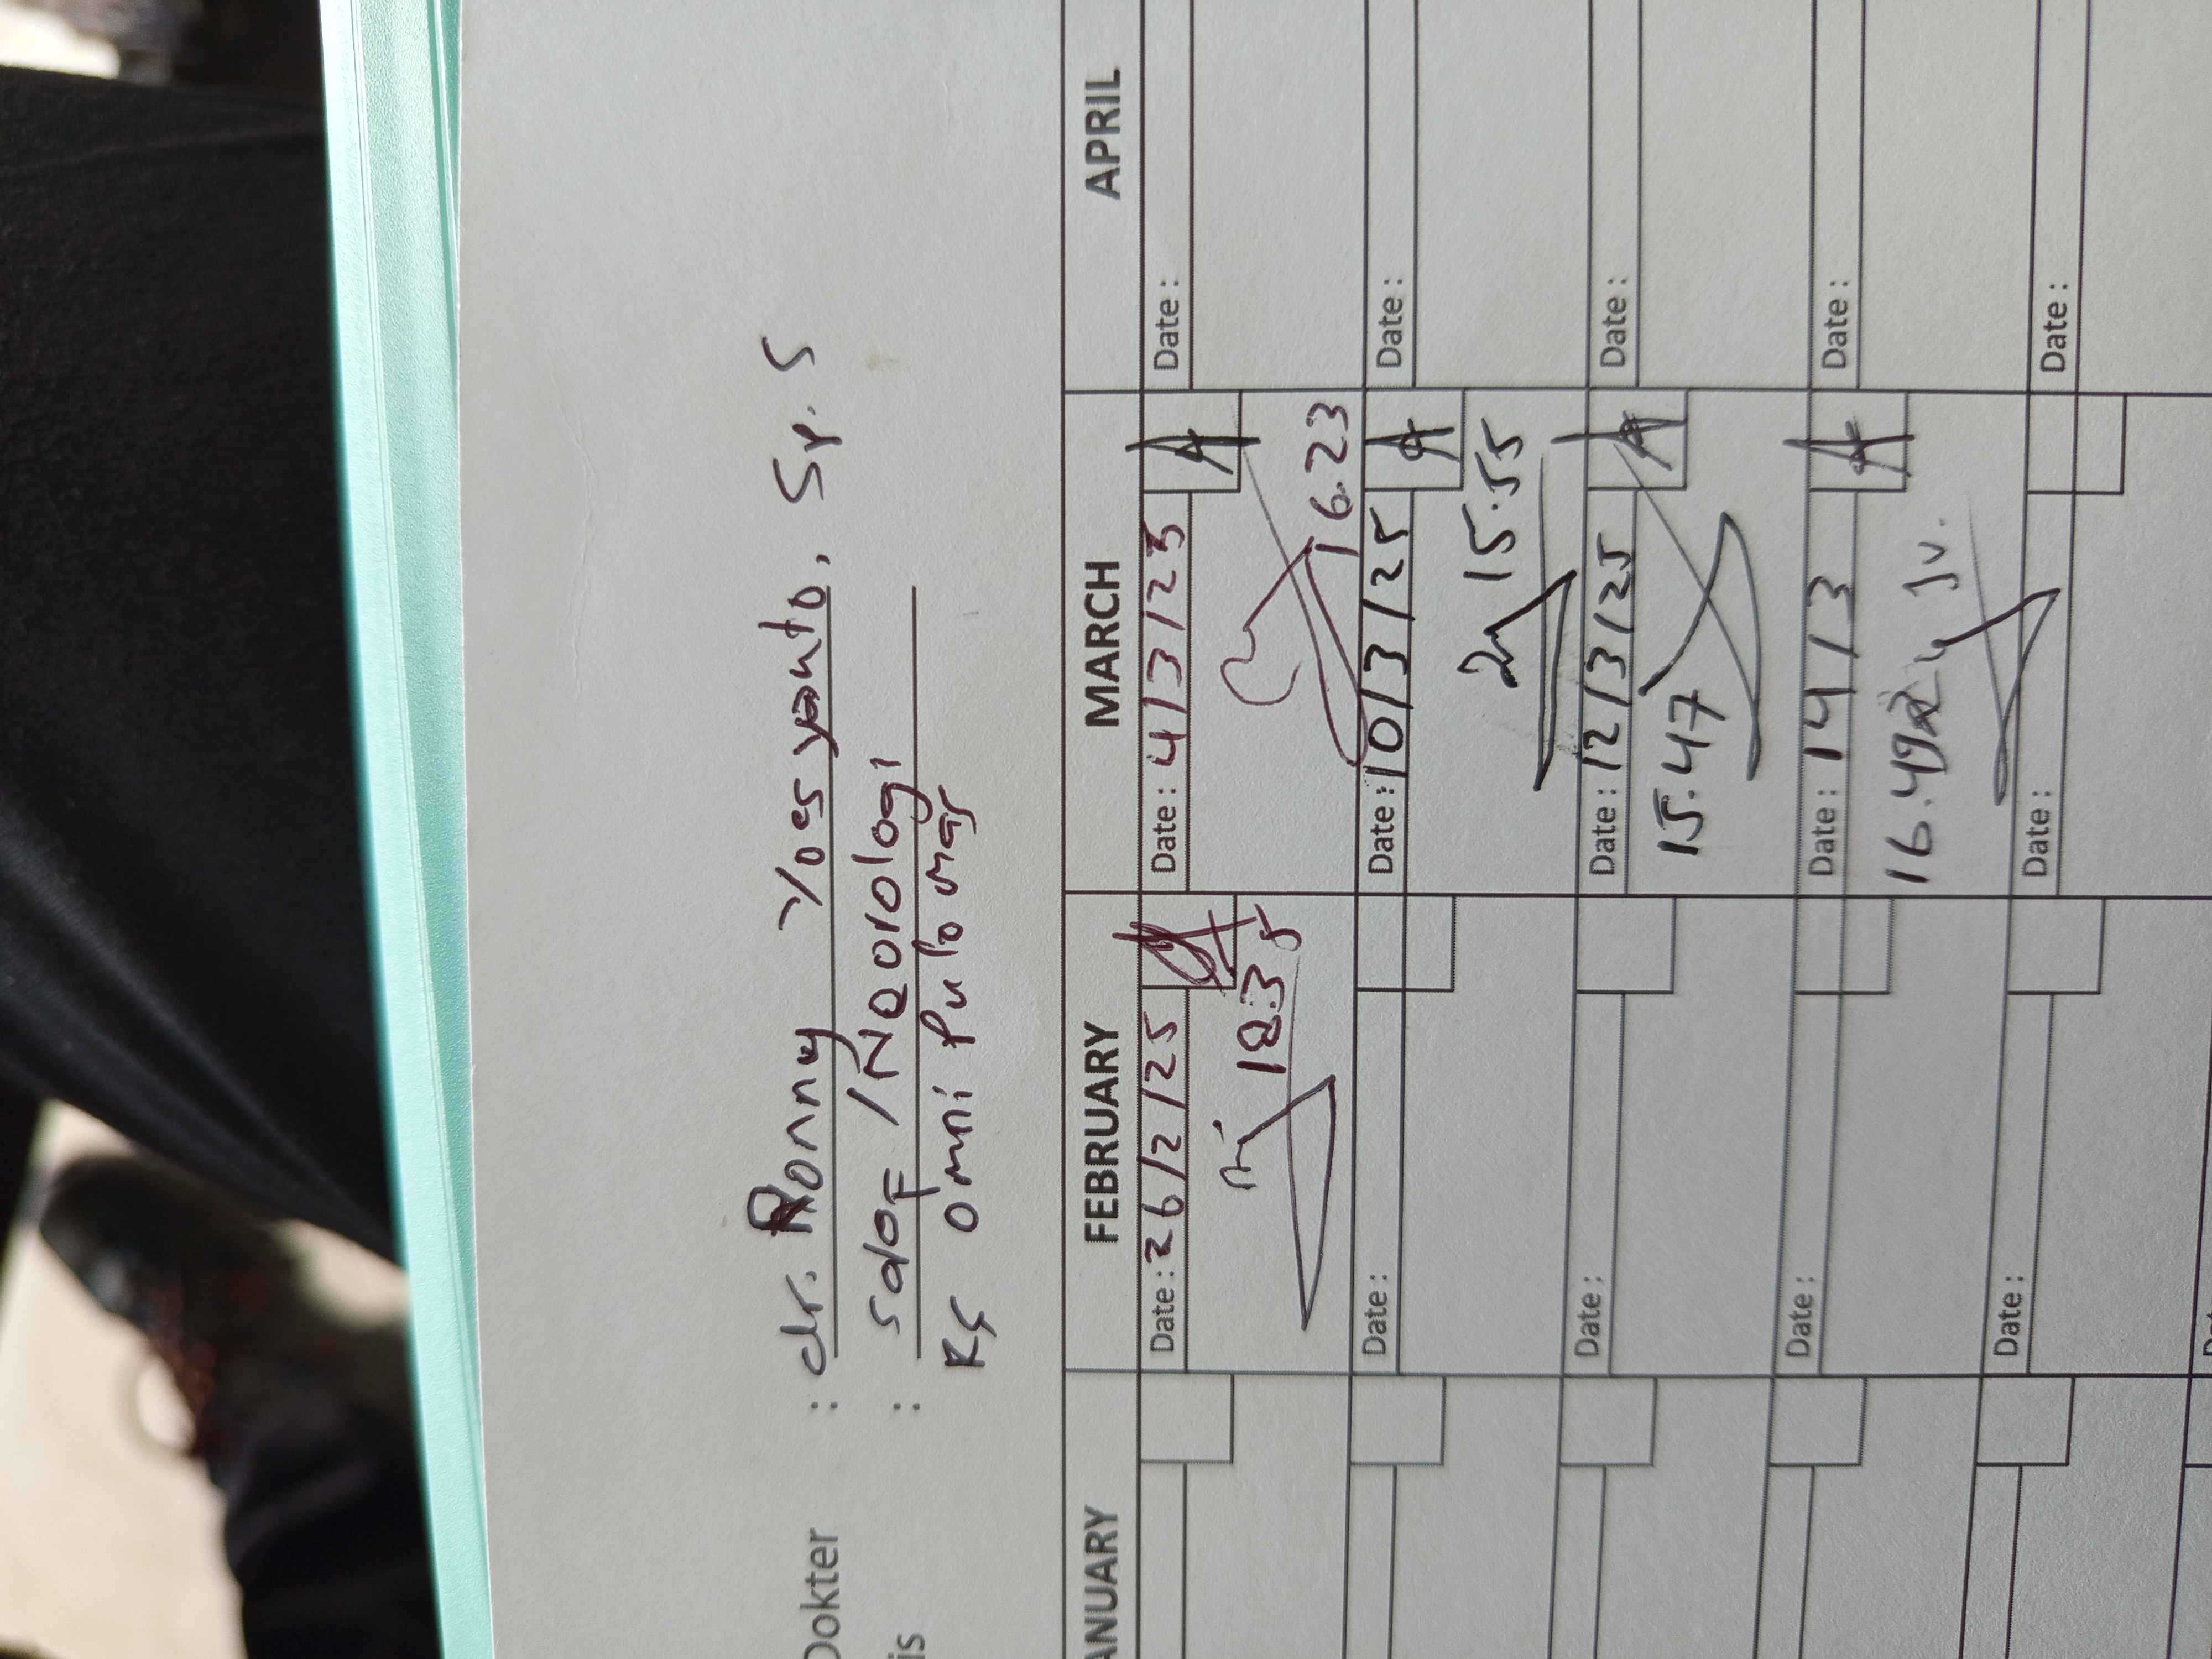 Dokter : dr. Ronny Yoesyanto, Sp. S
is : Saraf / Neorologi
RS Omni Pulomas
ANUARY FEBRUARY MARCH APRIL
Date : 26/2/25 Date : 4/3/25 Date :
18.35 16.23
Date : Date : 10/3/25 Date :
15.55
Date : Date : 12/3/25 Date :
15.47
Date : Date : 14/3 Date :
16.49
Date : Date : Date :